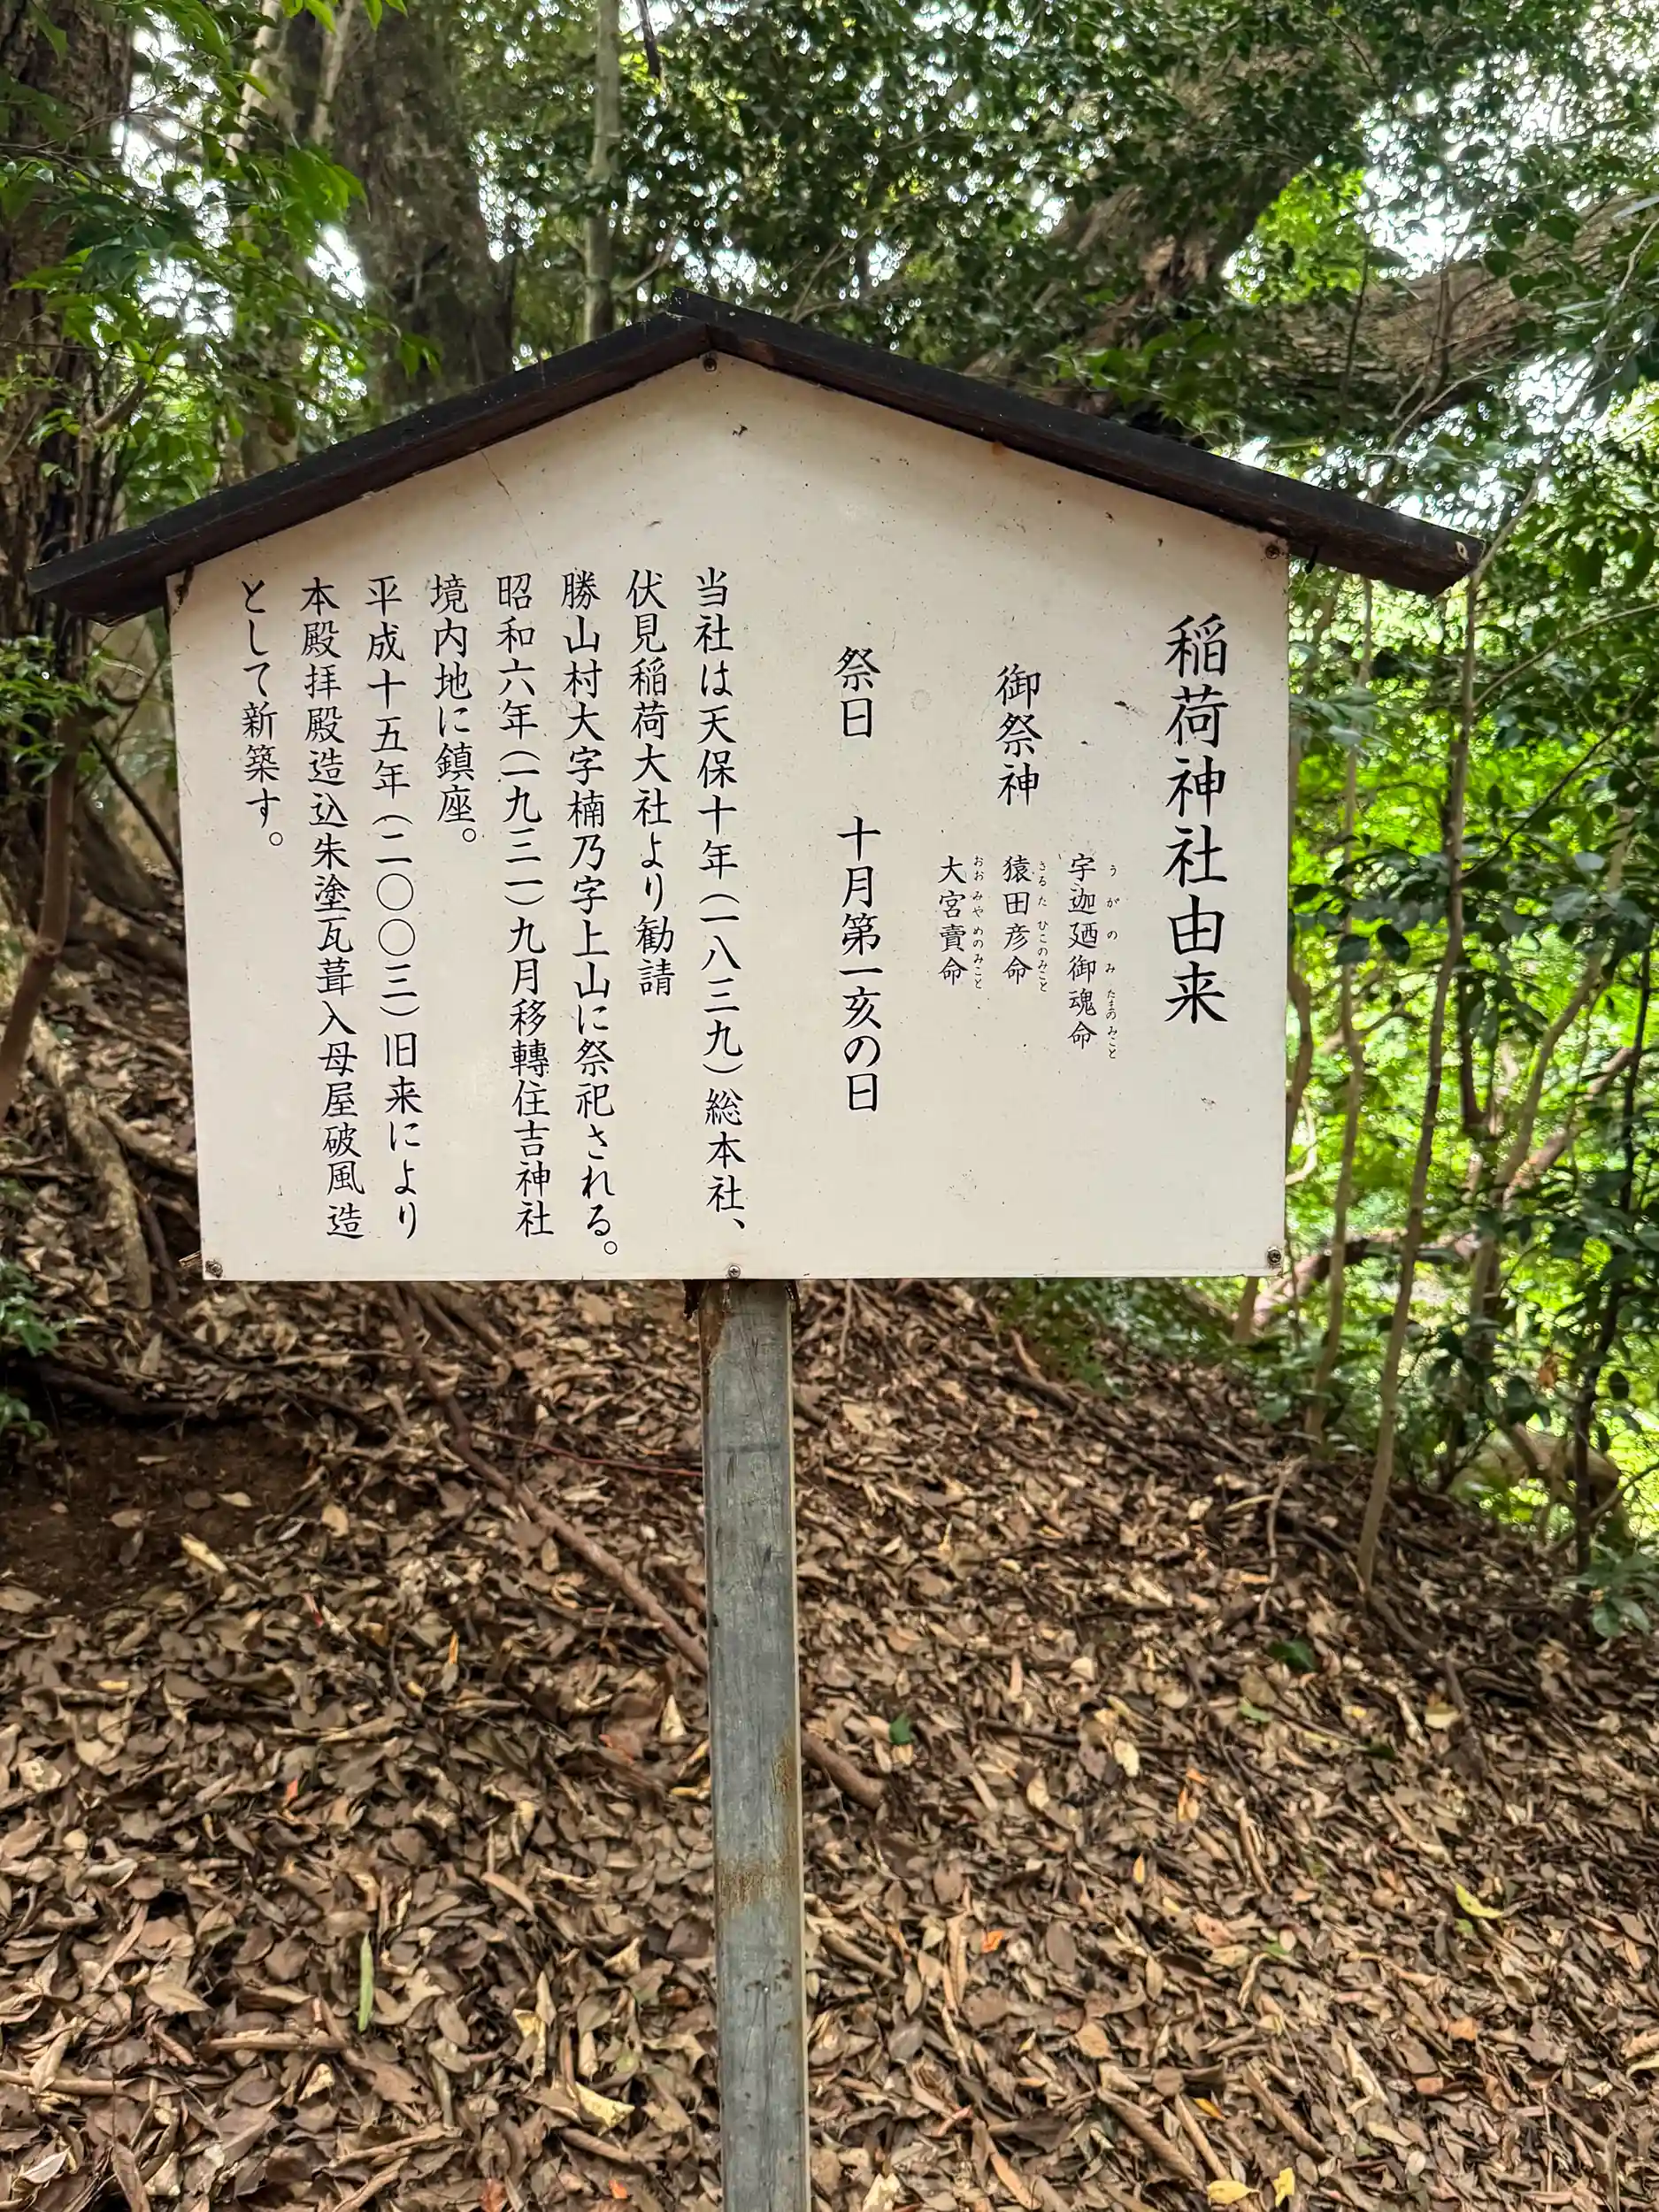 稲荷神社由来
御祭神
宇迦廼御魂命
うがのみたまのみこと
猿田彦命
さるたひこのみこと
大宮賣命
おおみやめのみこと
祭日 十月第一亥の日
当社は天保十年(一八三九)総本社、
伏見稲荷大社より勧請
勝山村大字楠乃字上山に祭祀される。
昭和六年(一九三一)九月移轉住吉神社
境内地に鎮座。
平成十五年(二〇〇三)旧来により
本殿拝殿造込朱塗瓦葺入母屋破風造
として新築す。